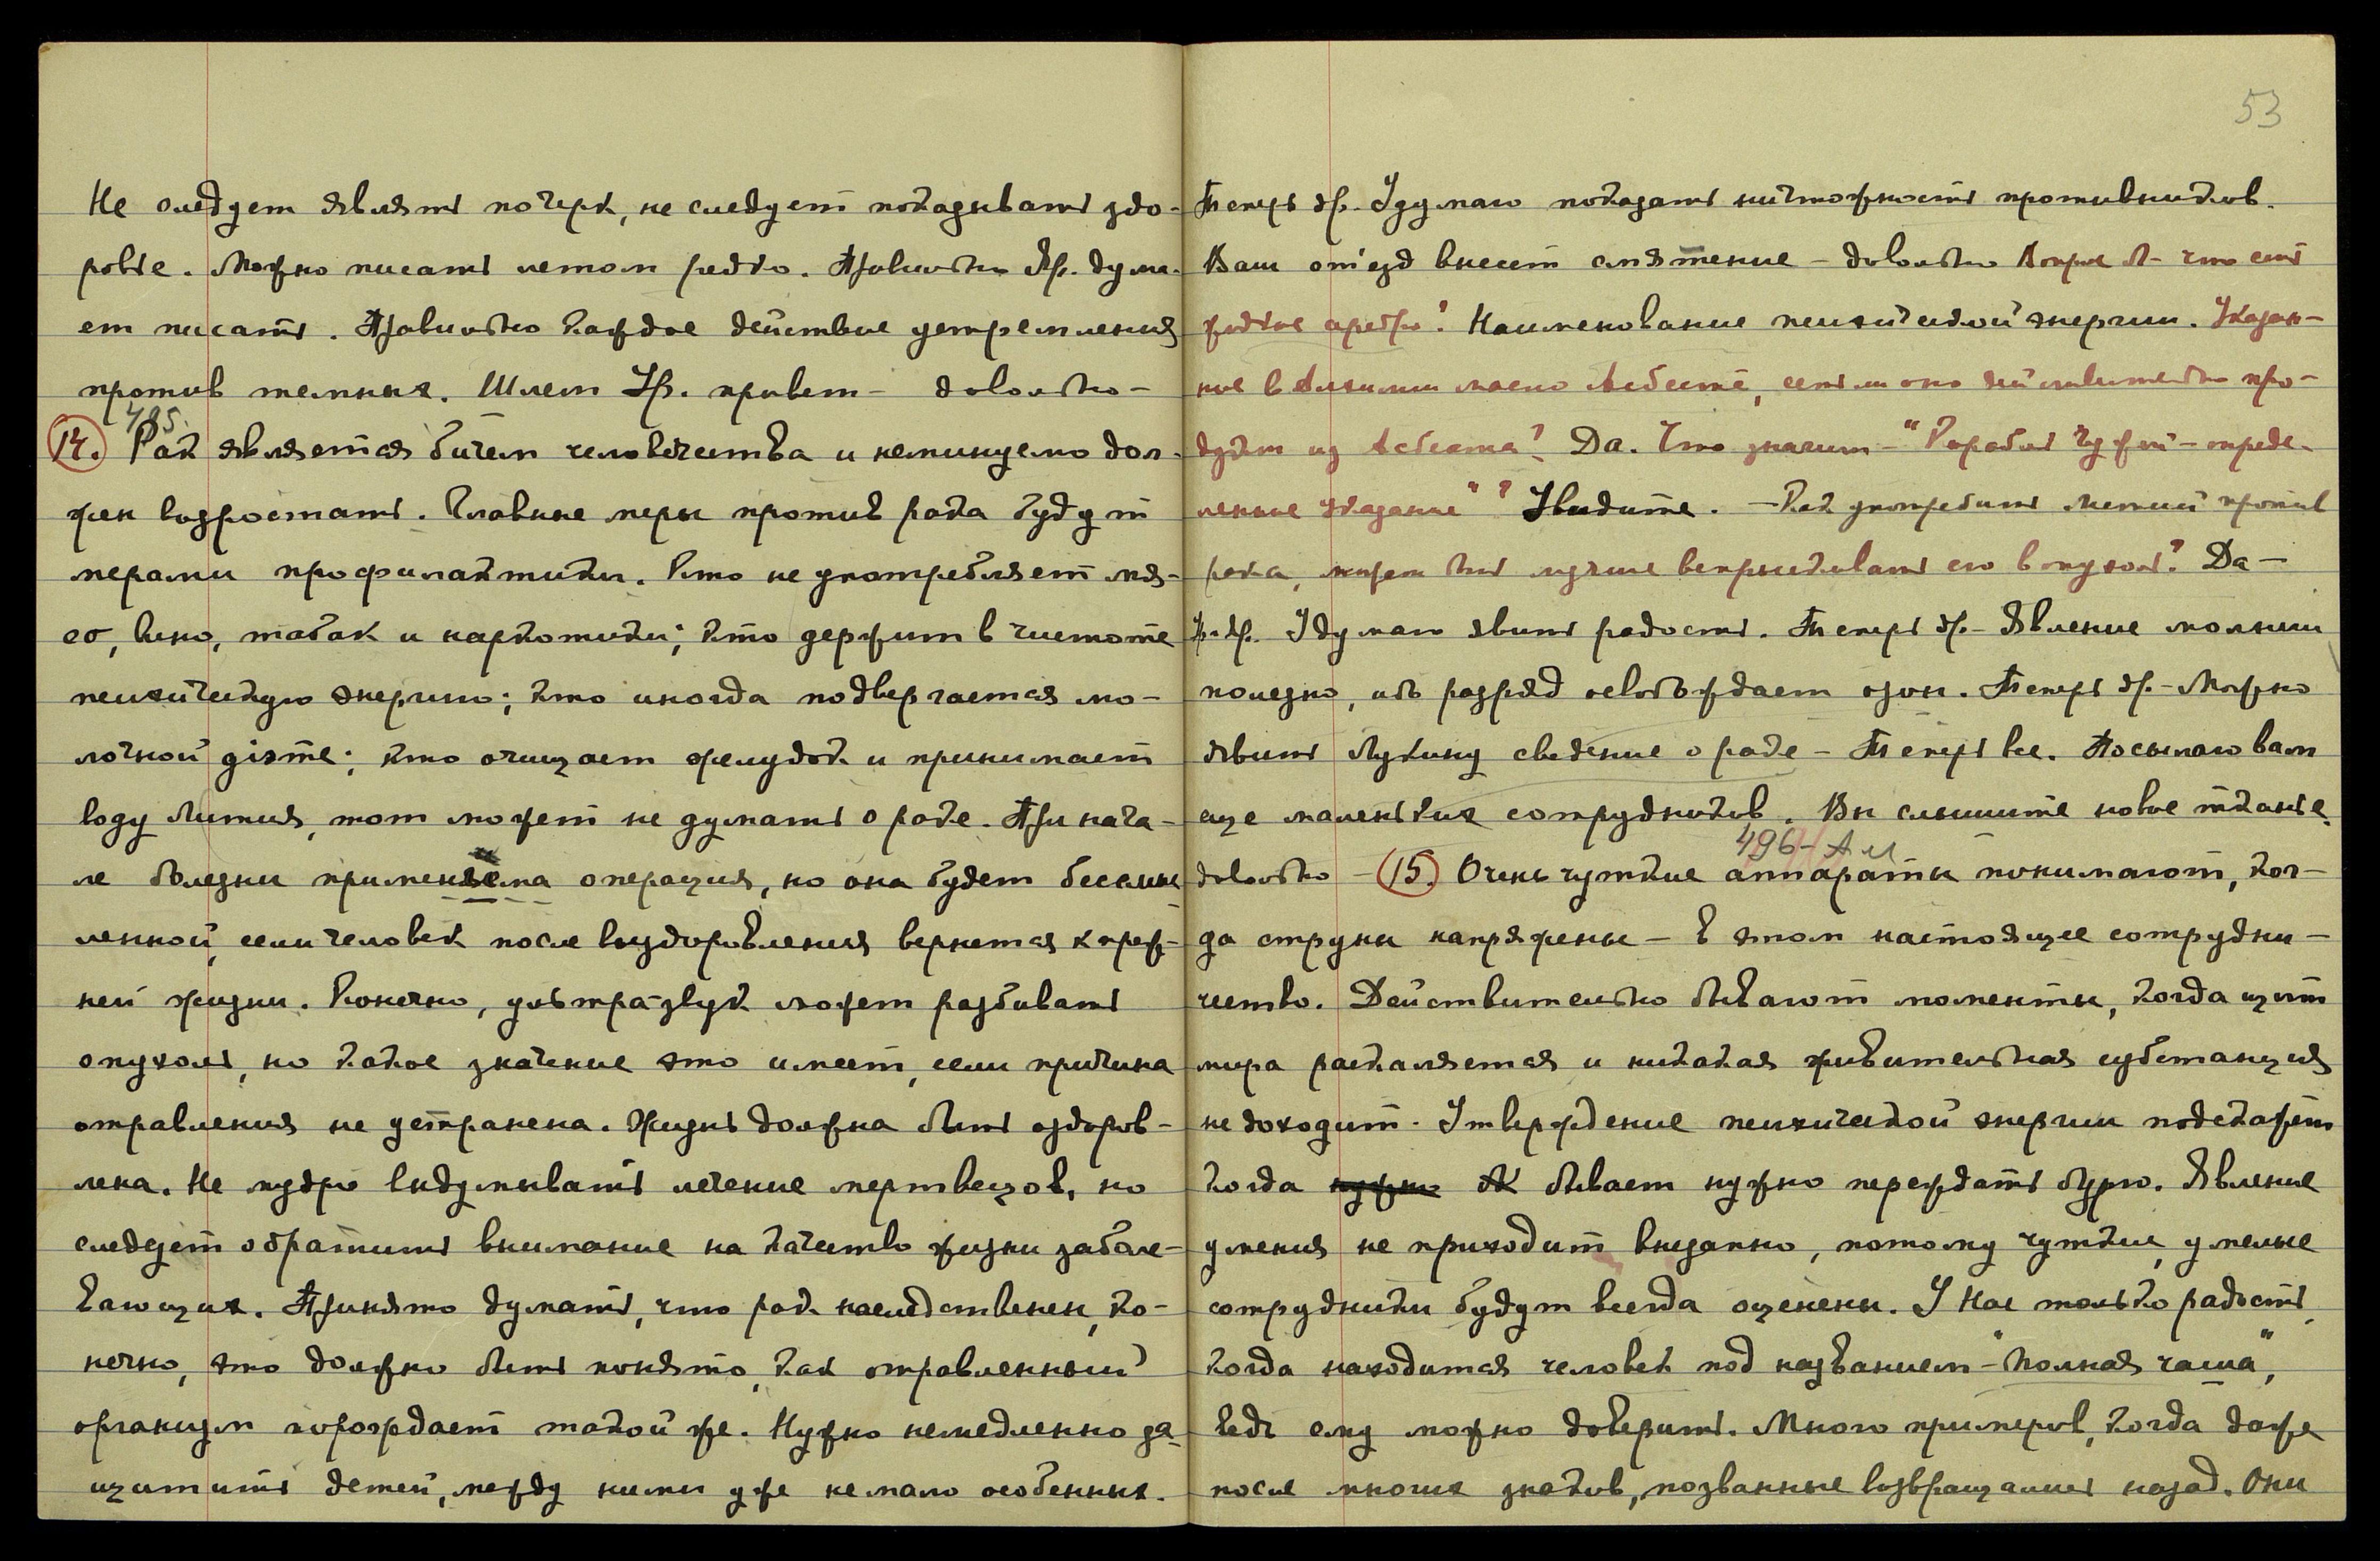 53
Не следует являть почерк, не следует показывать здо-
ровье. Можно писать летом редко. Правильно Ур. дума-
ет писать. Правильно каждое действие устремления
против темных. Шлем Ур. привет – довольно –
495.
14. Рак является бичем человечества и неминуемо дол-
жен возростать. Главные меры против рака будут
мерами профилактики. Кто не употребляет мя-
со, вино, табак и наркотики; кто держит в чистоте
психическую энергию; кто иногда подвергается мо-
лочной дiэте; кто очищает желудок и принимает
воду Лития, тот может не думать о раке. При нача-
ле болезни применяема операция, но она будет бессмыс
ленной, если человек после выздоровления вернется к преж-
ней жизни. Конечно, ультра-звук может разбивать
опухоль, но какое значение это имеет, если причина
отравления не устранена. Жизнь должна быть оздоров-
лена. Не мудро выдумывать лечение мертвецов, но
следует обратить внимание на качество жизни заболе-
вающих. Принято думать, что рак наследственен, ко-
нечно, это должно быть понято, как отравленный
организм порождает такой же. Нужно немедленно за-
щитить детей, между ними уже не мало особенных.
Теперь др. Удумаю показать ничтожность противников.
Ваш от'езд внесет смятение – довольно Вопрос – что есть
жидкое серебро? Наименование психической энергии. Указан-
ное в Алхимии масло Асбеста, есть ли оно действительно про-
дукт из Асбеста? Да. Что значит – "Корабль Чужой – опреде-
ленное указание"? Увидите. – Как употребить Литий против
рака, может быть лучше вспрыскивать его в опухоль? Да –
др. Удумаю явить радость. Теперь др. – Явление молнии
полезно, ибо разряд освобождает озон. Теперь др. – Можно
явить Лукину сведение о раке – Теперь все. Посылаю вам
еще маленьких сотрудников. Вы слышите новое тканье,
496 – А М
довольно – 15. Очень чуткие аппараты понимают, ког-
да струны напряжены – в этом настоящее сотрудни-
чество. Действительно бывают моменты, когда щит
мира раскаляется и никакая живительная субстанция
не доходит. Утверждение психической энергии подскажет
когда нужно бывает нужно переждать бурю. Явление
умения не приходит внезапно, потому чуткие, умелые
сотрудники будут всегда оценены. У Нас только радость,
когда находится человек под названием – "Полная чаша",
ведь ему можно доверить. Много примеров, когда даже
после многих знаков, позванные возвращались назад. Они